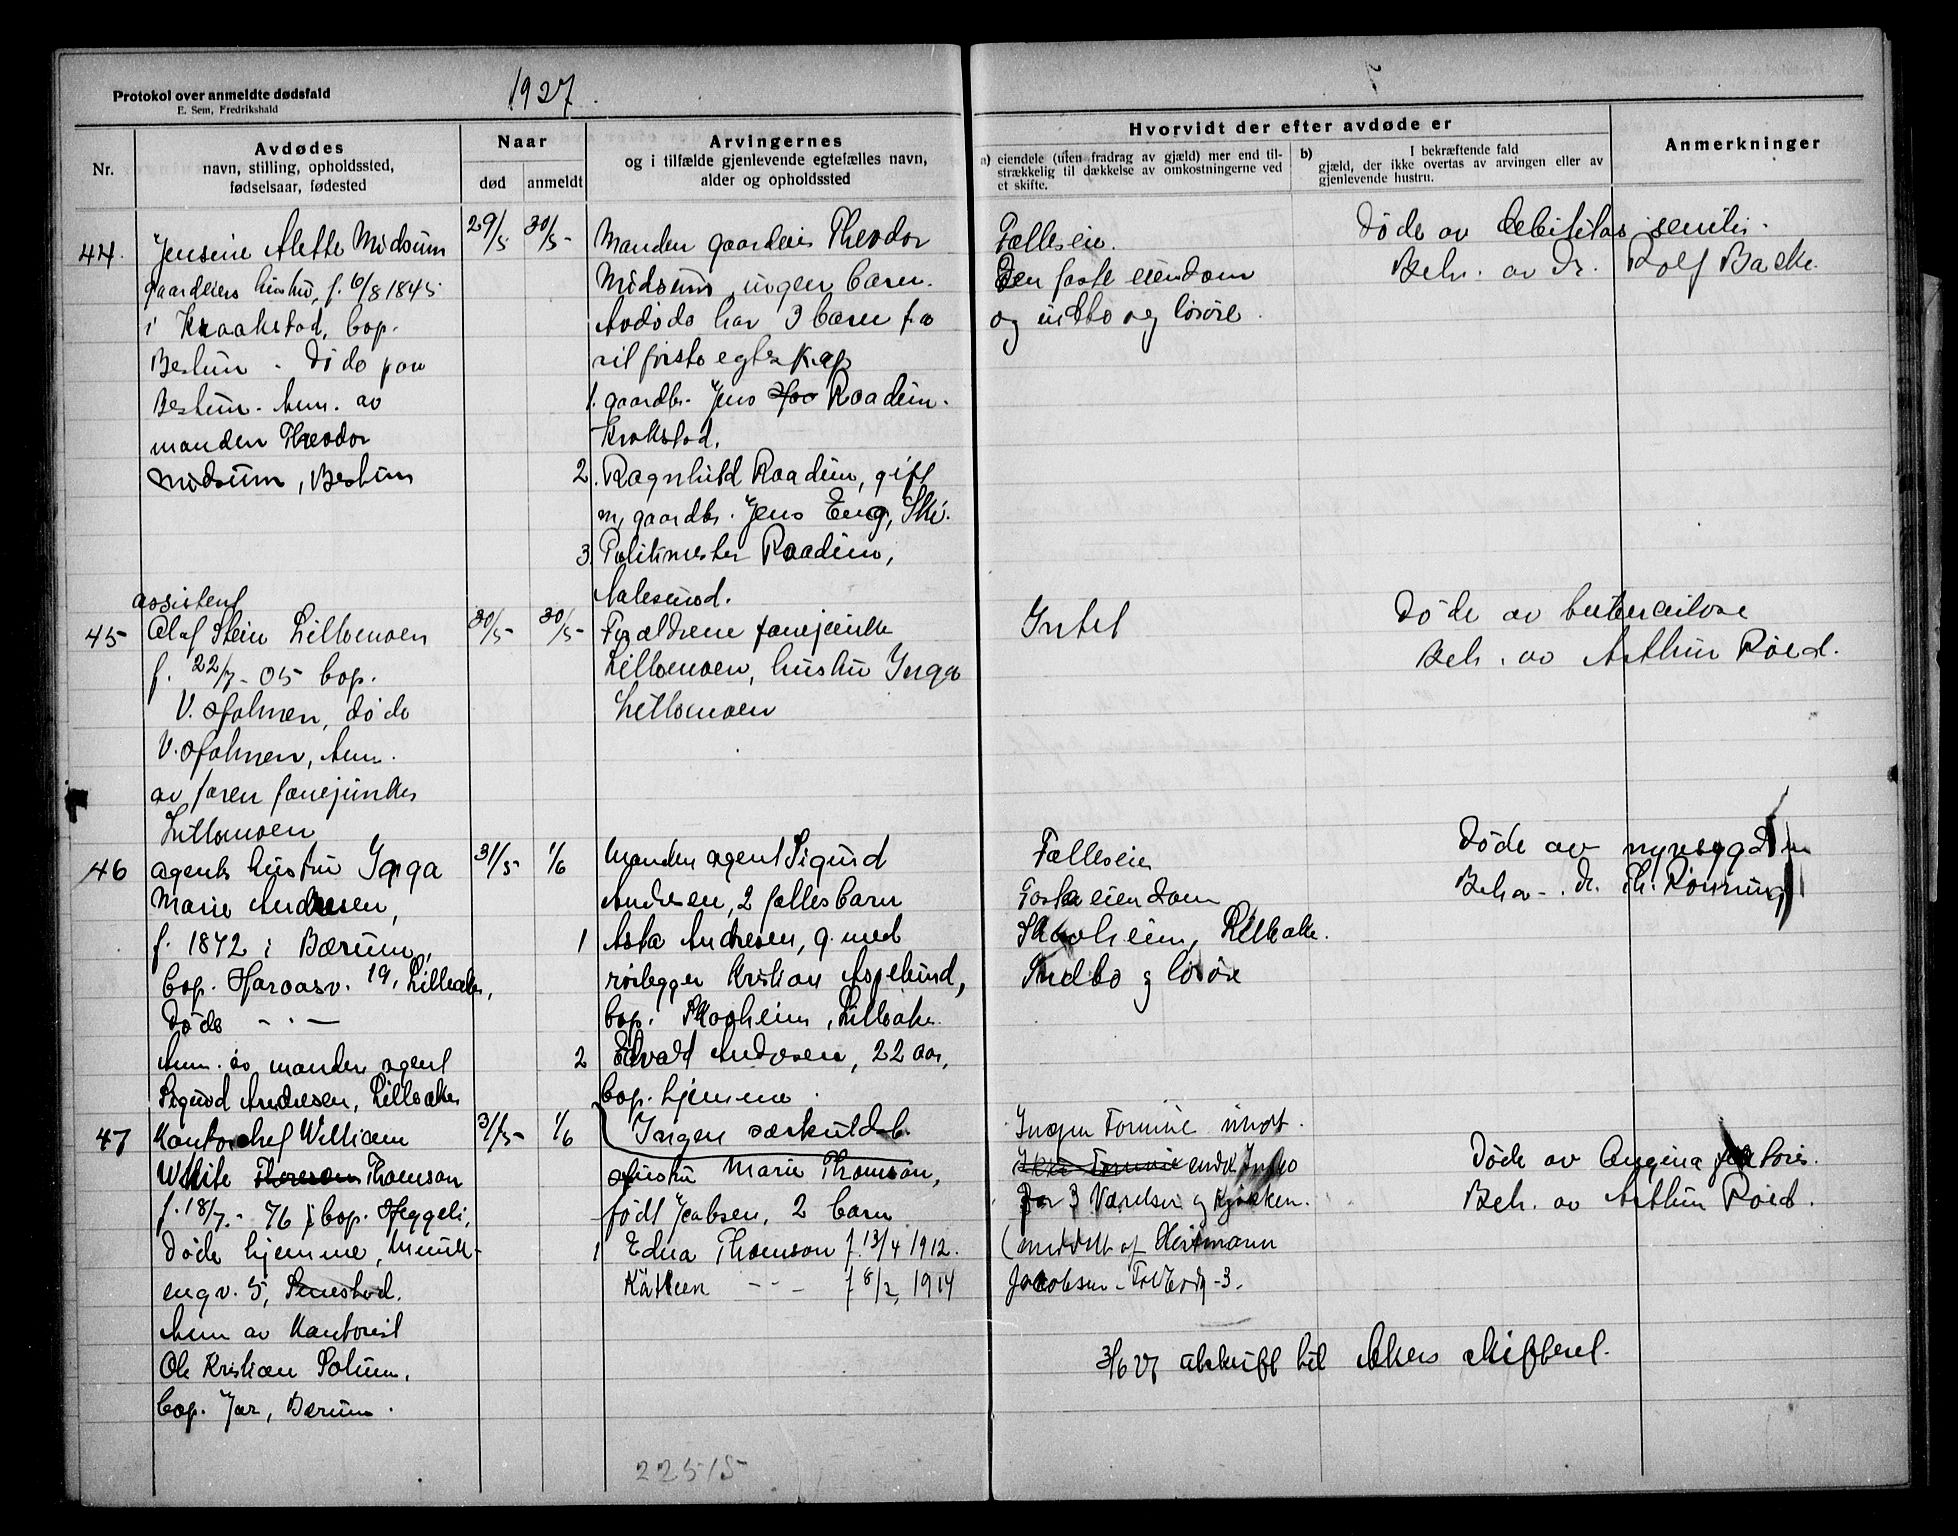 Protokol over anmeldte dødsfald
E. Sem, Fredrikshald
1927.
7
Nr.
Avdødes
navn, stilling, opholdssted,
fødselsaar, fødested
Naar
død
anmeldt
Arvingernes
og i tilfælde gjenlevende egtefælles navn,
alder og opholdssted
Hvorvidt der efter avdøde er
a) eiendele (uten fradrag av gjæld) mer end til-
strækkelig til dækkelse av omkostningerne ved
et skifte.
b) I bekræftende fald
gjæld, der ikke overtas av arvingen eller av
gjenlevende hustru.
Anmerkninger
44.
Jensine Alette Midsum
gaardeiers hustru, f. 6/8 1845
i Kraakstad, bop.
Bestum. Døde paa
Bestum. Anm. av
manden Theodor
Midsum, Bestum
29/5
30/5-
Manden gaardeier Theodor
Midsum, ingen barn.
Avdøde har 3 barn fra
sit første egteskap
1. gaardbr. Jens Raadim.
Krokstad.
2. Ragnhild Raadim, gift
m. gaardbr. Jens Eng, Ski.
3. Politimester Raadim,
Aalesund.
Fælleseie.
Den faste eiendom
og indbo og løsøre.
Døde av debilitas senilis.
Beh. av Dr. Rolf Backe.
45
assistent
Olaf Stein Lillomoen
f. 22/7-05 bop.
V. Holmen, døde
V. Holmen, Anm.
av faren fanejunker
Lillomoen
30/5-
30/5-
Forældrene fanejunker
Lillomoen, hustru Inga
Lillomoen
Intet
Døde av tuberculose
Beh. av Arthur Röed.
46
agents hustru Inga
Marie Andresen,
f. 1872 i Bærum,
bop. Haraasv. 19, Lilleaker,
Døde - . -
Anm. av manden agent
Sigurd Andresen, Lilleaker
31/5-
1/6
Manden agent Sigurd
Andresen, 2 fælles barn
1 Asta Andresen, g. med
rørlegger Kristian Aspelund,
bop. Skogheim, Lilleaker.
2 Edvald Andresen, 22 aar,
bop. hjemme.
Ingen særkuldsb.
Fælleseie
Faste eiendom
Skogheim, Lilleaker.
Indbo og løsøre
Døde av nyresygdom
Beh. av . Dr. Th. Rönning
47
Kontorchef William
White Thoresen Thomson
f. 18/7.-76 bop. Heggeli,
Døde hjemme, Munk-
engv. 5,
Anm av Kontorist
Ole Kristian Solum,
bop. Jar, Bærum.
31/5-
1/6
Hustru Marie Thomson,
født Jacobsen, 2 barn
1 Edna Thomson f. 13/4 1912.
- - f 8/2, 1914
Ingen Formue undt.
Ikke Formue endel Indbo
for 3 Værelser og Kjøkken.
(meddelt af Heitmann
Jacobsen - Toldbodg-3.
Døde av Angina pectoris.
Beh. av Arthur Röed.
3/6 27 avskrift til Akers skifteret.
22515